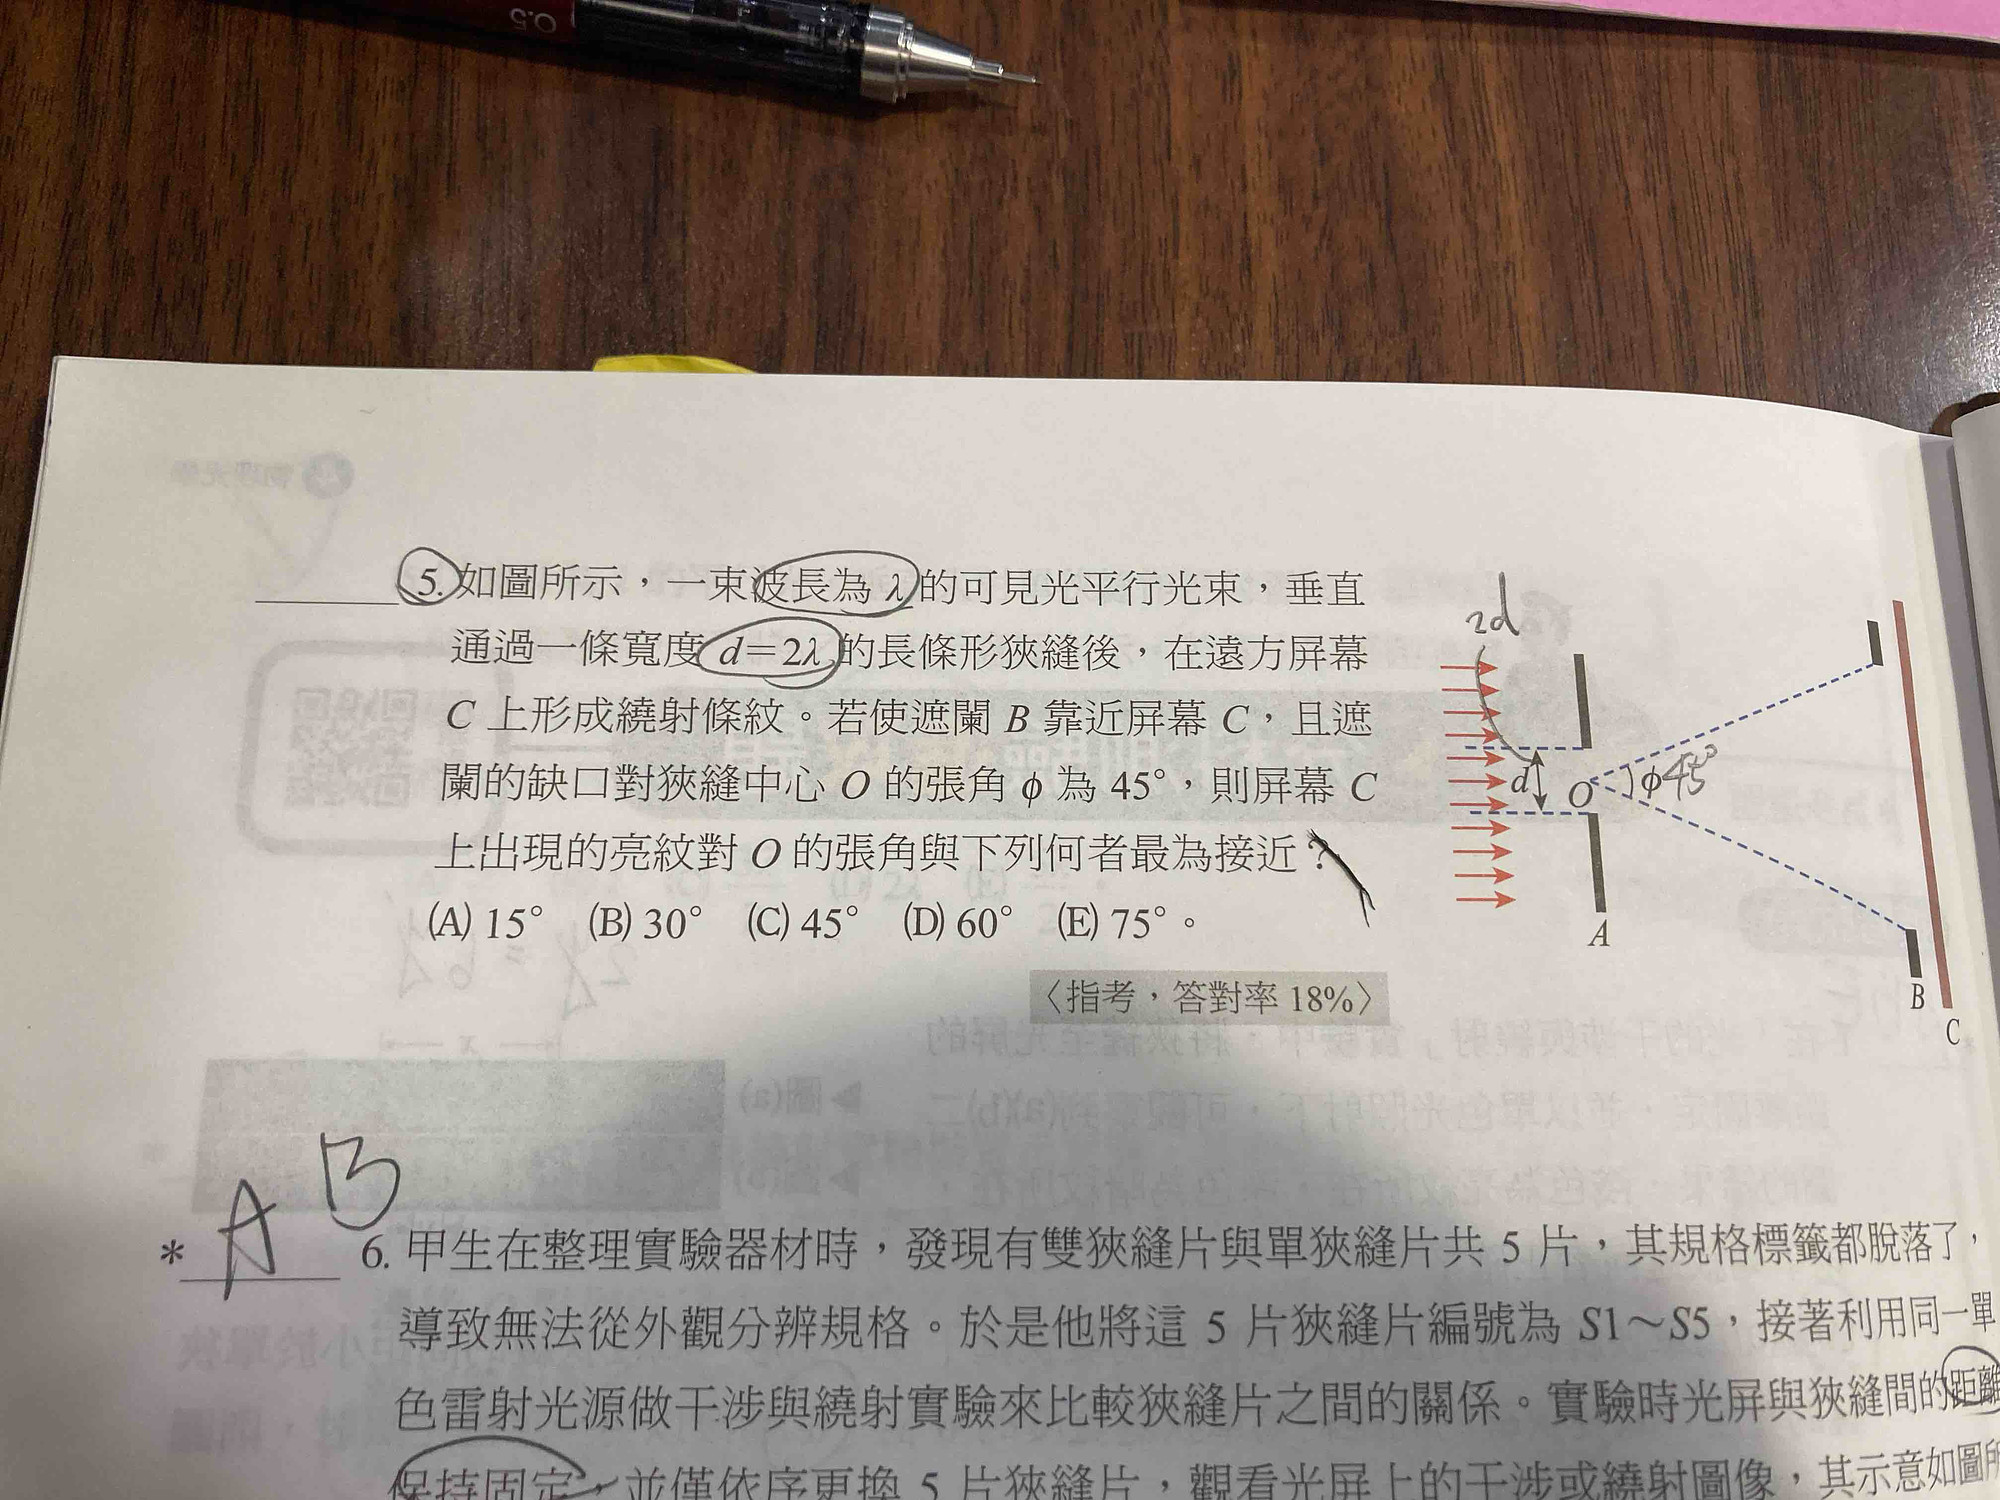 0.5
5. 如圖所示，一束波長為 λ 的可見光平行光束，垂直
通過一條寬度 d＝2λ 的長條形狹縫後，在遠方屏幕
C 上形成繞射條紋。若使遮闌 B 靠近屏幕 C，且遮
闌的缺口對狹縫中心 O 的張角 ϕ 為 45°，則屏幕 C
上出現的亮紋對 O 的張角與下列何者最為接近？
(A) 15° (B) 30° (C) 45° (D) 60° (E) 75°。
〈指考，答對率 18%〉
2d
d
O
ϕ 45°
A
B
C
A B
* 6. 甲生在整理實驗器材時，發現有雙狹縫片與單狹縫片共 5 片，其規格標籤都脫落了，
導致無法從外觀分辨規格。於是他將這 5 片狹縫片編號為 S1～S5，接著利用同一單
色雷射光源做干涉與繞射實驗來比較狹縫片之間的關係。實驗時光屏與狹縫間的距離
保持固定，並僅依序更換 5 片狹縫片，觀看光屏上的干涉或繞射圖像，其示意如圖所